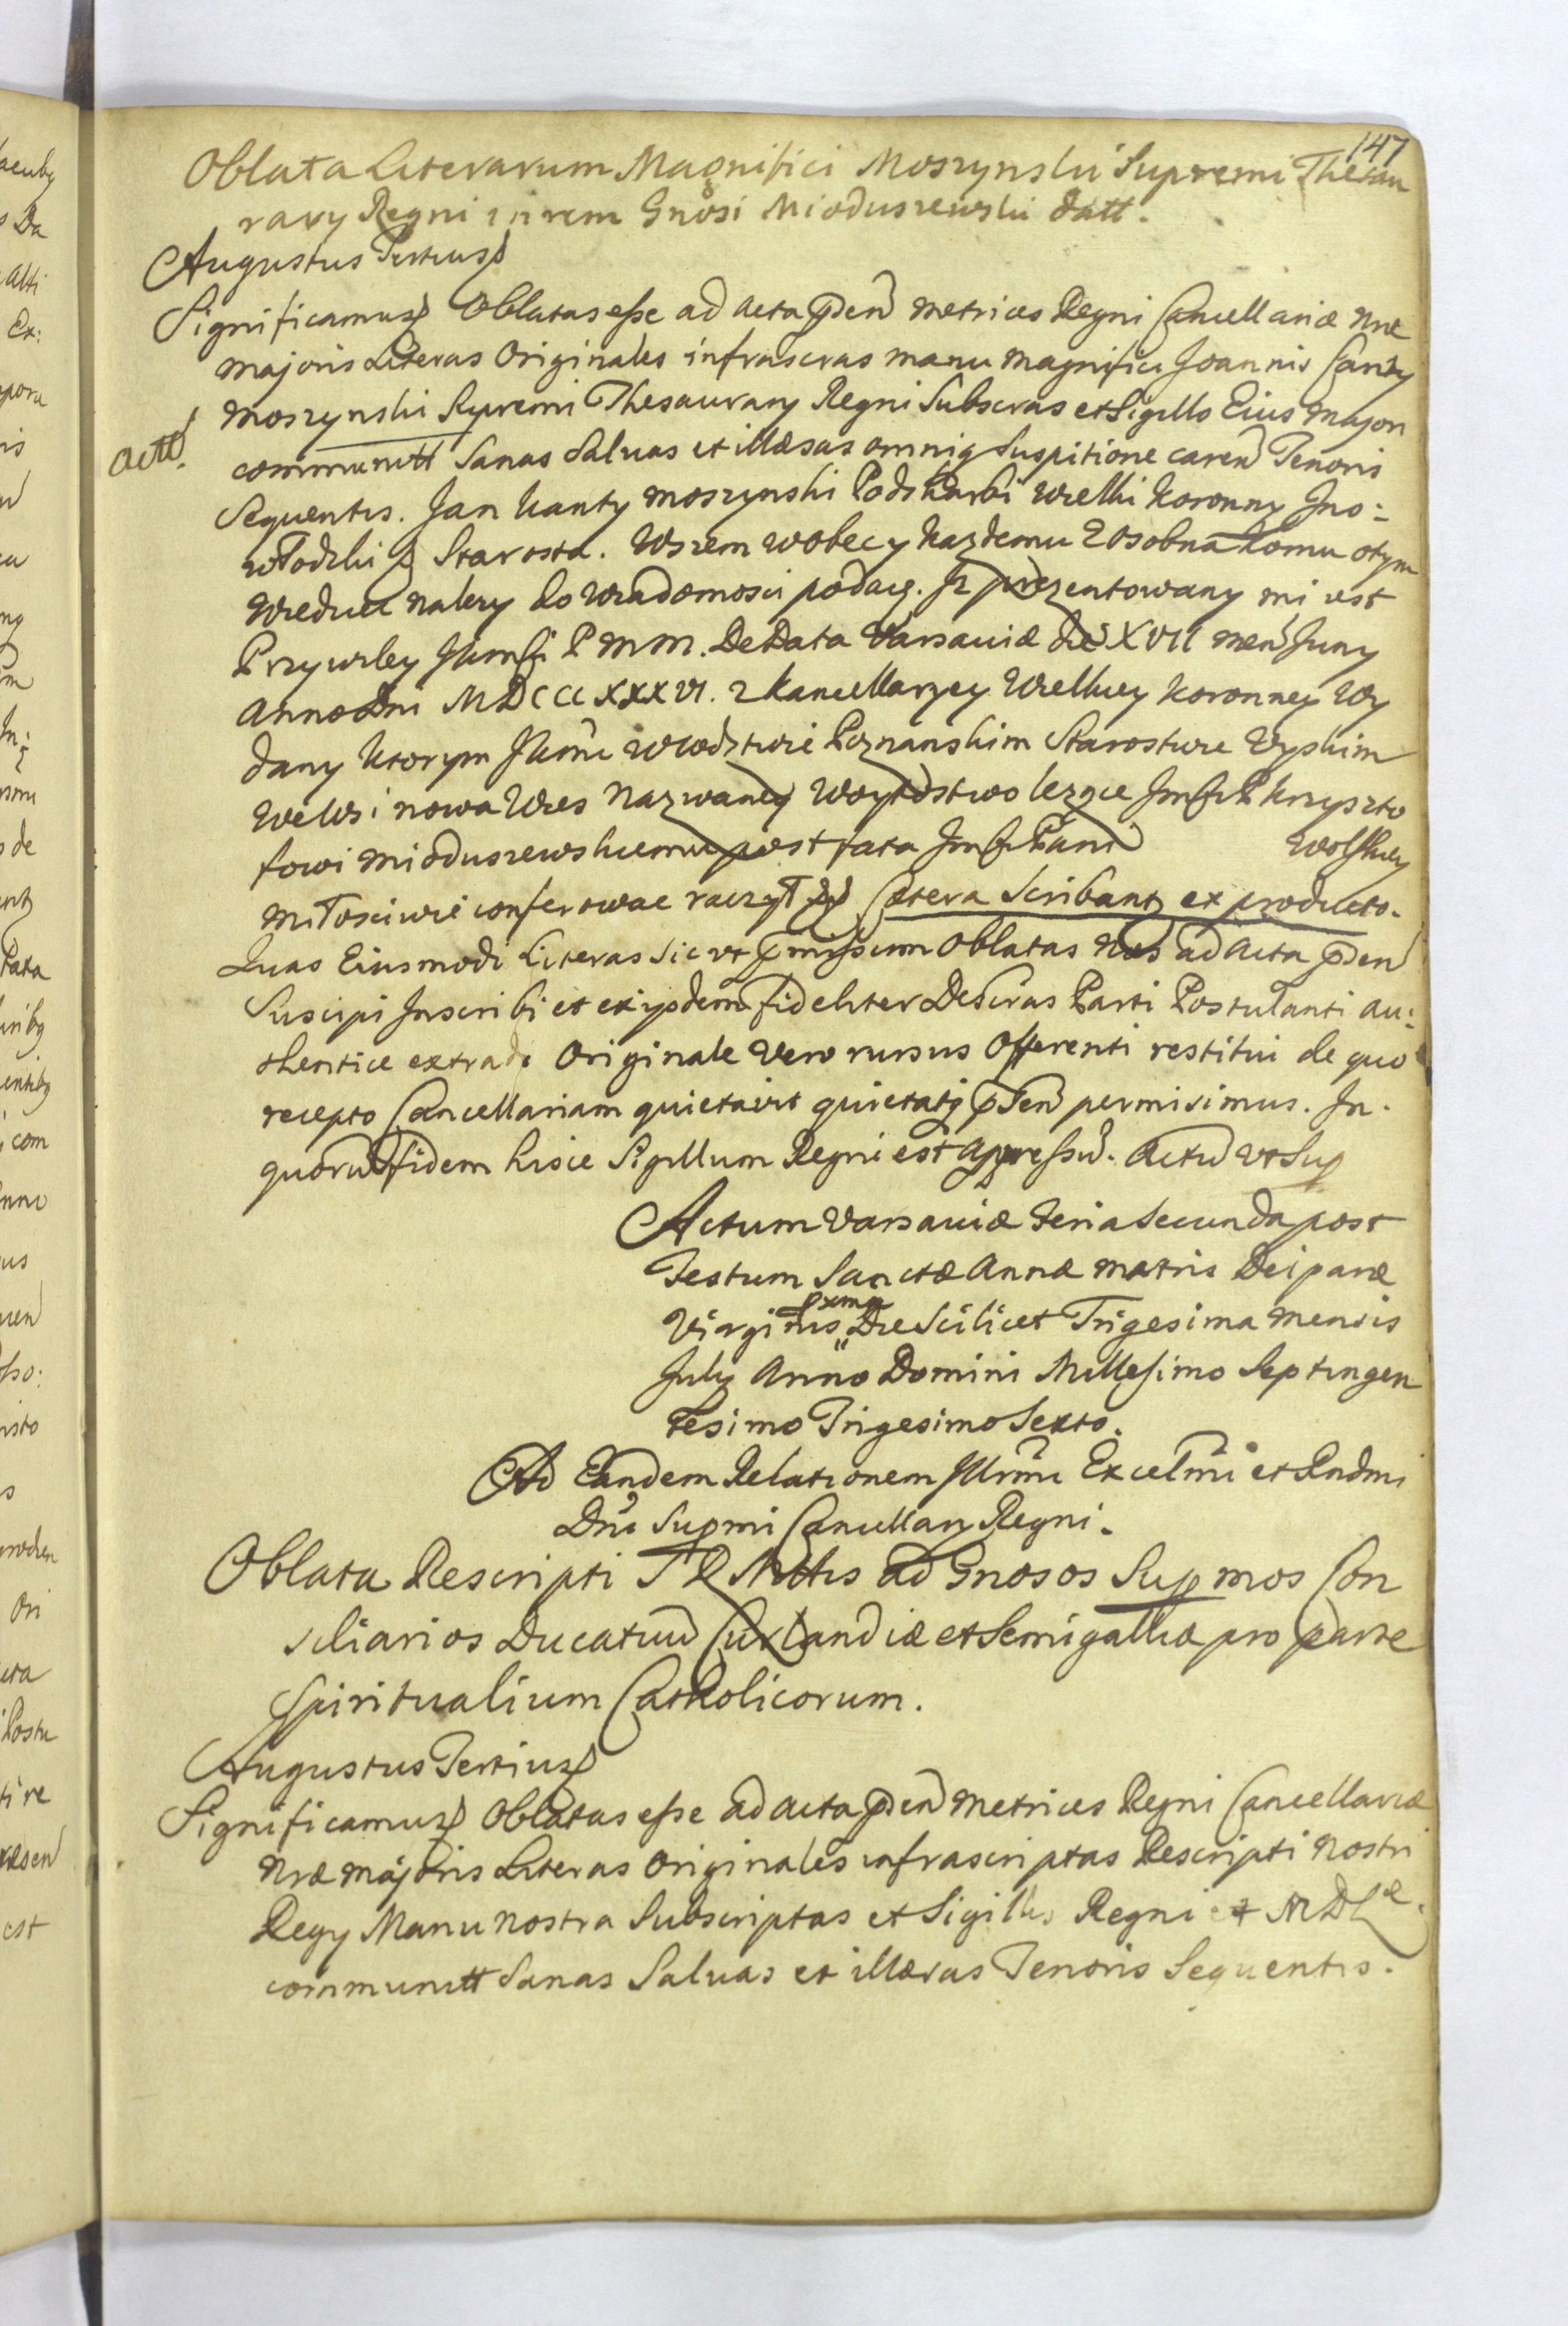 147
Oblata Literarum Magnifici Moszynski Supremi Thesau
rary Regni in rem Gnosi Mioduszewski datt.
Augustus Tertius
Significamus Oblatas esse ad Acta pnden Metrices Regni Cancellariæ nræ
majoris Literas Originales infrascras manu Magnifici Joannis Canty
Moszynski Supremi Thesaurary Regni Subscras et Sigillo Eius majori
actt.
communitt Sanas Salvas et illæsas omniq Suspitione caren Tenoris
Sequentis. Jan Kanty Moszynski Podskarbi Wielki Koronny Jno:
włodzki Starosta. Wszem wobec y kazdemu zosobna komu otym
wiedziec nalezy do wiadomosci podaię. Jz prezentowany mi iest
Przywiley JKmsci P M M. De Data Varsaviæ die XVII men Juny
Anno Dni MDCCXXXVI. z Kancellaryey Wielkiey Koronney Wy
dany ktorym JKmc w Wodztwie Poznanskim Starostwie Uyskim
we Wsi nowa Wies nazwaney Woytostwo lezące Jmsci P Krzyszto
fowi Mioduszewskiemu post fata Jmsci Pani Wolskiey
miłosciwie conferowac raczył Cætera Scribantz ex producto.
Quas Eiusmodi Literas sic ut pmissum Oblatas Nos ad Acta pnden
Suscipi Inscribi et ex ijsdem fideliter Descras Parti Postulanti au:
thentice extradi Originale Vero rursus Offerenti restitui de quo
recepto Cancellariam quietavit quietatq pnden permisimus. In
quorum fidem hisce Sigillum Regni est appressum. Actum ut Sup
Actum Varsaviæ Feria Secunda post
Festum Sanctæ Annæ matris Deiparæ
Virginis pxma Die Scilicet Trigesima Mensis
July Anno Domini Millesimo Septingen
tesimo Trigesimo Sexto.
Ad Eandem Relationem Illrmi Excelmi et Rndmi
Dni Supmi Cancellary Regni.
Oblata Rescripti S R Mttis ad Gnosos Supmos Con
siliarios Ducatuum Curlandiæ et Semigalliæ pro parte
Spiritualium Catholicorum.
Augustus Tertius
Significamus Oblatas esse ad Acta pnden Metrices Regni Cancellariæ
Nræ Majoris Literas Originales infrascriptas Rescripti Nostri
Regy Manu Nostra Subscriptas et Sigillis Regni et M D L
communitt Sanas Salvas et illæsas Tenoris Sequentis.